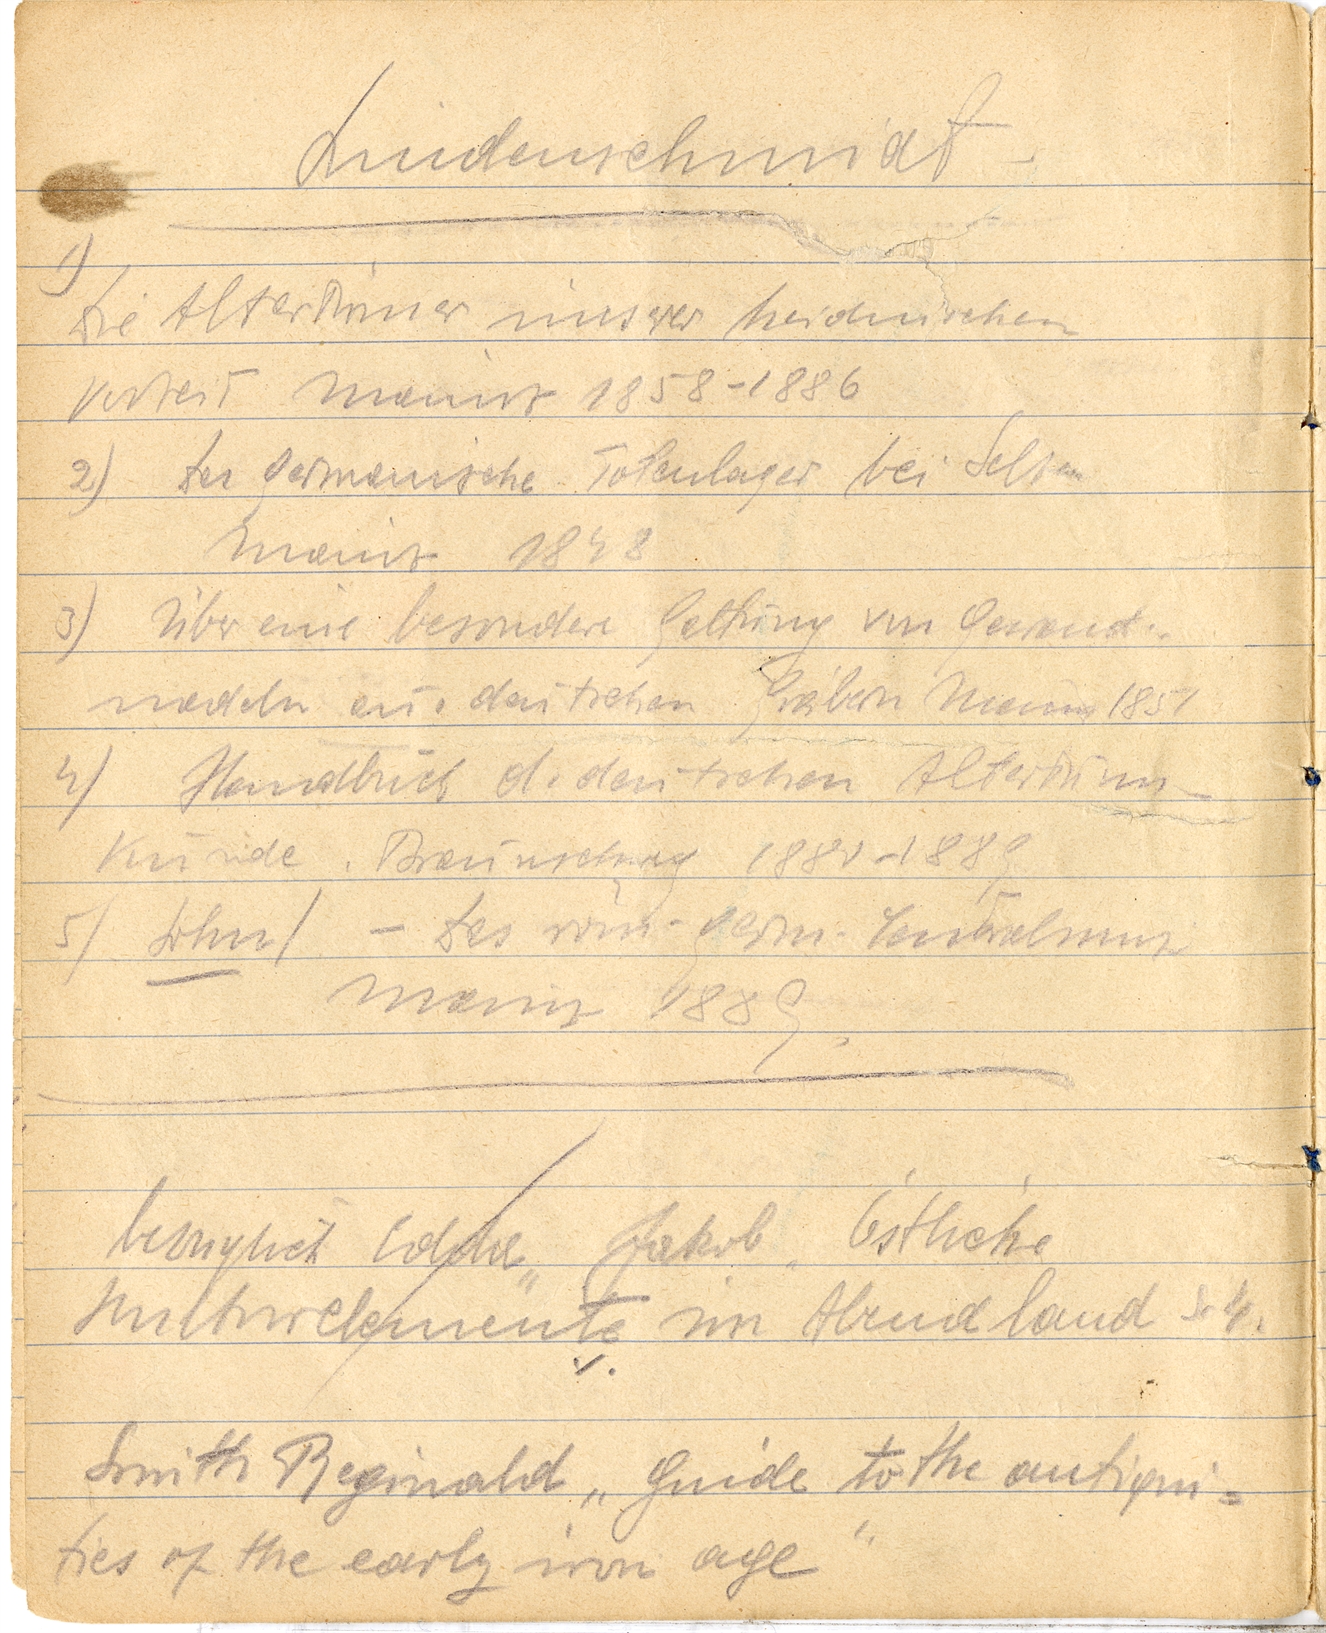 Lindenschmidt
1)
Die Altertümer unserer heidnischen
Vorzeit Mainz 1858-1886
2) Das germanische Totenlager bei Selzen
Mainz 1848
3) Über eine besondere Gattung von Gewand-
nadeln aus deutschen Gräbern Mainz 1851
4) Handbuch d. deutschen Altertums-
kunde. Braunschweig 1880-1889
5) Sohn/ - Das röm-germ. Zentralmus
Mainz 1889.
bezüglich Edda, Jakob. Östliche
Kulturelemente im Abendland
Smith Reginald „Guide to the antiqui=
ties of the early iron age"